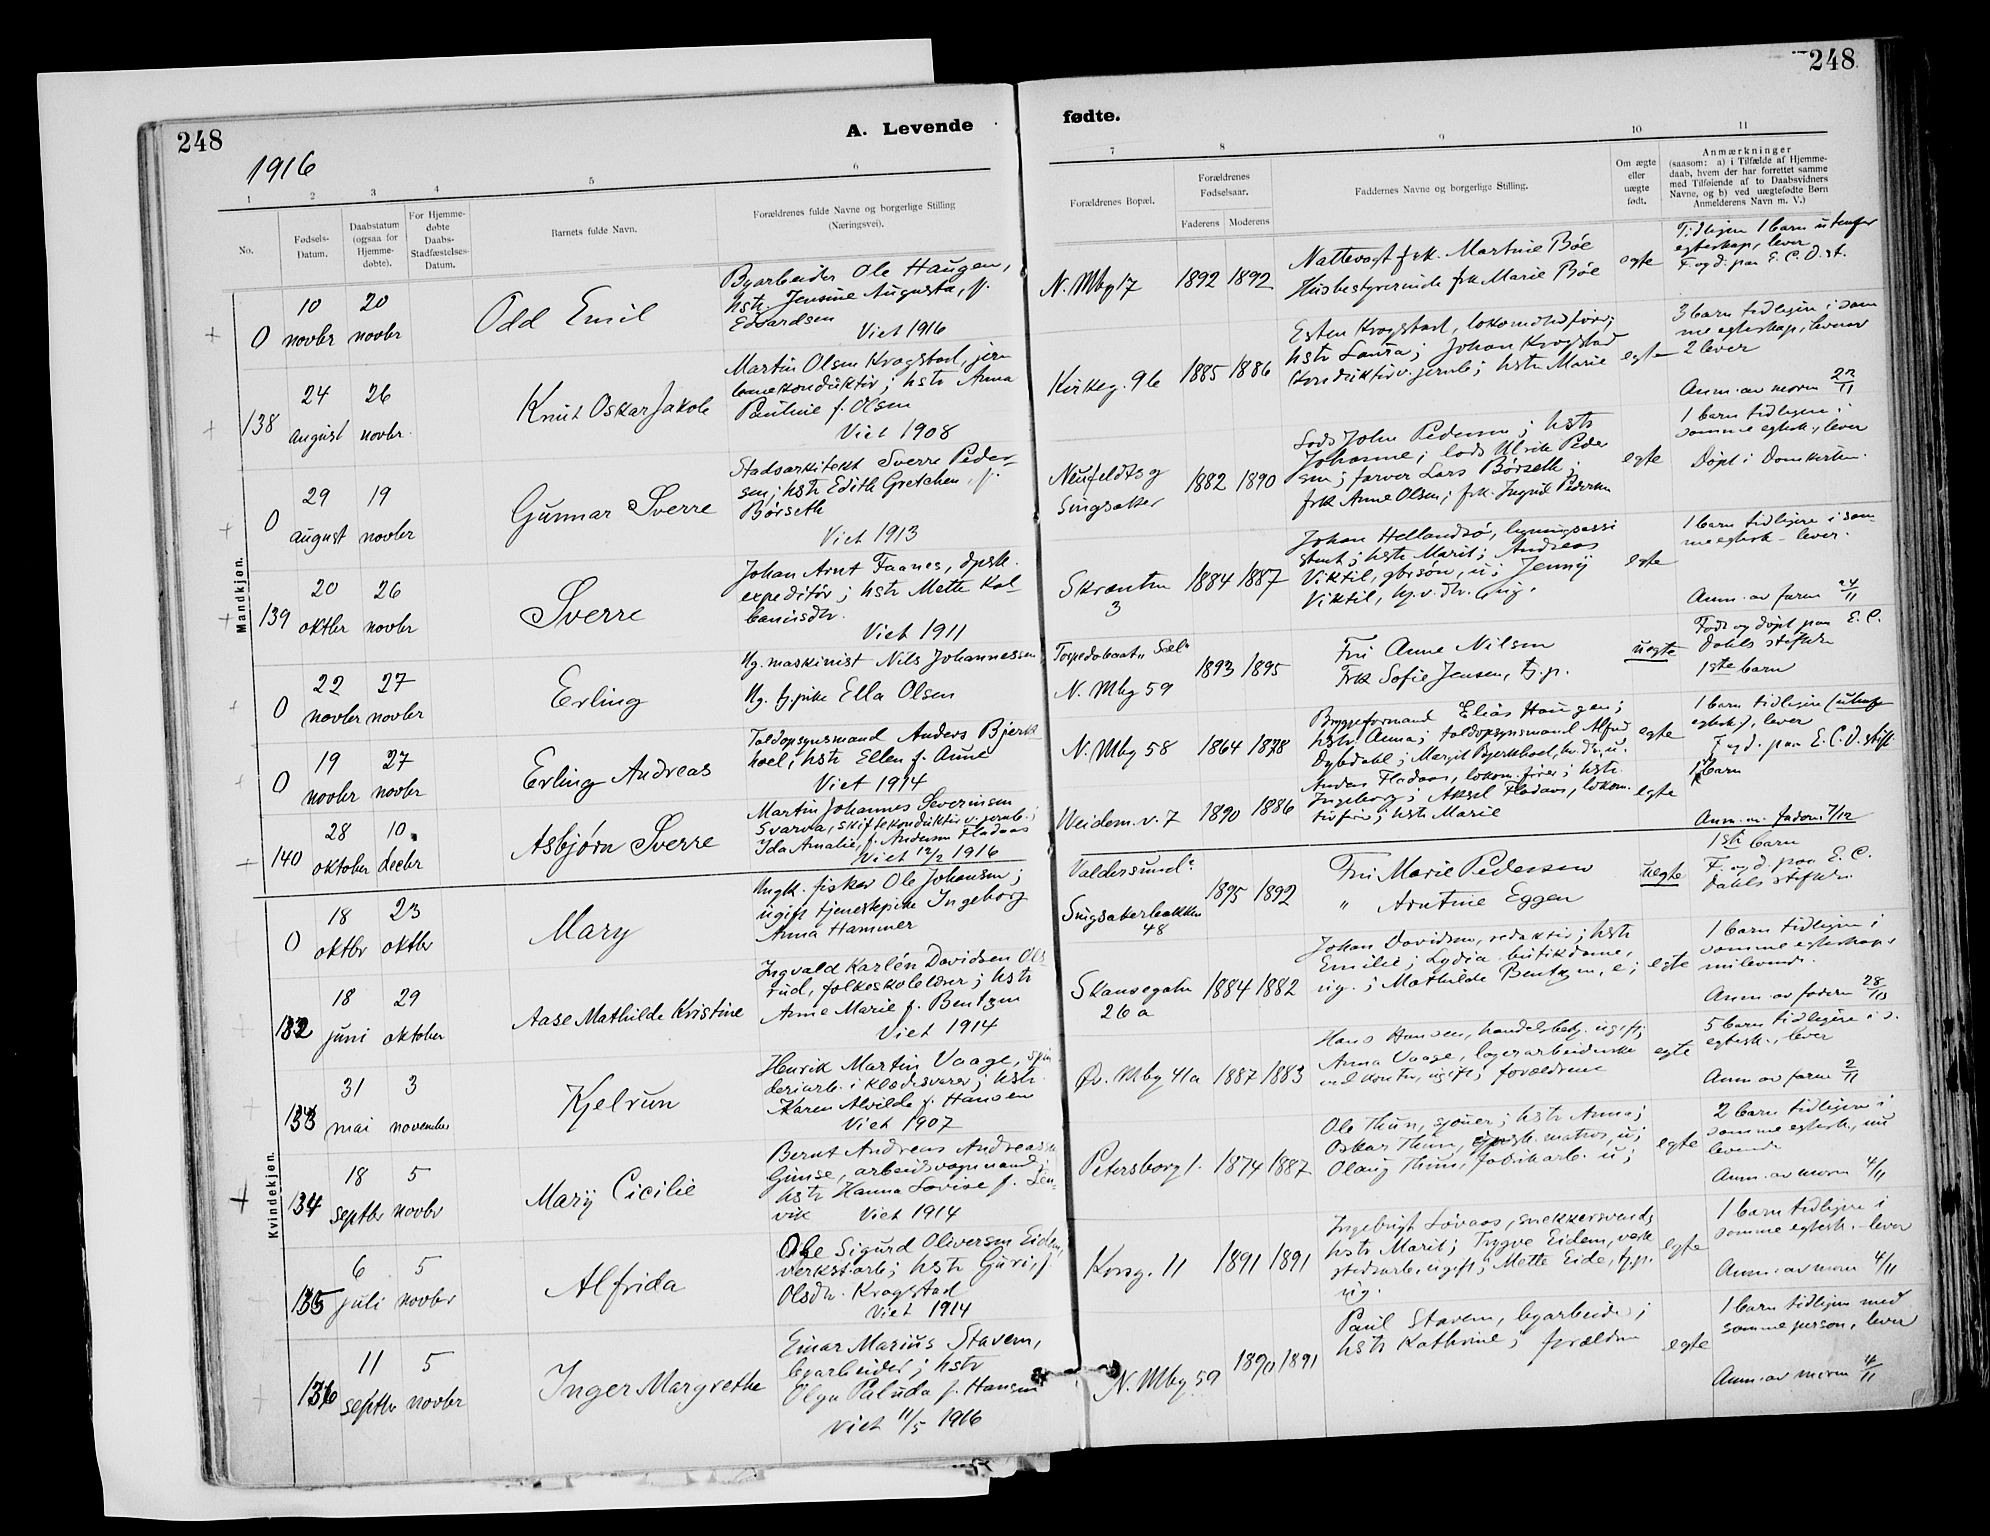 248
A. Levende
fødte.
248
1916
1 2 3 4 5 6
7 8 9 10 11
No.
Fødsels-
Datum.
Daabsdatum
(ogsaa for
Hjemme-
døbte).
For Hjemme-
døbte
Daabs-
Stadfæstelses-
Datum.
Barnets fulde Navn.
Forældrenes fulde Navne og borgerlige Stilling
(Næringsvei).
Forældrenes Bopæl.
Forældrenes
Fødselsaar.
Faderens Moderens
Faddernes Navne og borgerlige Stilling.
Om ægte
eller
uægte
født.
Anmærkninger
(saasom: a) i Tilfælde af Hjemme-
daab, hvem der har forrettet samme
med Tilføiende af to Daabsvidners
Navne, og b) ved uægtefødte Børn
Anmelderens Navn m. V.)
Mandkjøn.
0
10 novbr
20 novbr
Odd Emil
Byarbeider Ole Haugen,
hstr. Jensine Augusta, f.
Edvardsen
Viet 1916
N. Mbg 17
1892 1892
Nattevagt frk. Martine Bøe
Husbestyrerinde frk Marie Bøe
egte
Tidligere 1 barn utenfor
egteskap, lever
F. og d. paa E. C. D. st.
138
24 august
26 novbr.
Knut Oskar Jakob
Martin Olsen Krogstad, jern
banekonduktør; hstr Anna
Pauline f. Olsen
Viet 1908
Kirkeg. 9b
1885 1886
Esten Krogstad, lokomotivfører;
hstr Laura; Johan Krogstad
konduktør v. jernb; hstr Marie
egte
3 barn tidligere i sam
me egteskap,
2 lever
Anm. av moren 22/11
0
29 august
19 novbr
Gunnar Sverre
Stadsarkitekt Sverre Peder-
sen; hstr Edith Gretchen, f.
Børseth
Viet 1913
Neufeldts g
Singsaker
1882 1890
Lods John Pedersen; hstr
Johanne; lods Ulrik Peder
sen; farver Lars Børseth;
frk Anne Olsen; frk. Ingrid Pedersen
egte
1 barn tidligere i
samme egtesk., lever
Døpt i Domkirken.
139
20 oktbr
26 novbr
Sverre
Johan Arnt Faanes, dpsk.
expeditør; hstr Mette Kol-
banusdtr.
Viet 1911
Skrænten
3
1884 1887
Johan Hellandsø, ligningsassi
stent; hstr Marit; Andreas
Viktil, gbrsøn, u; Jenny
Viktil, hj. v. dtr. ug.
egte
1 barn tidligere i sam-
me egtesk - lever.
Anm. av faren 24/11
0
22 novbr
27 novbr
Erling
Ug. maskinist Nils Johannessen
Ug. tj.pike Ella Olsen
Torpedobaat "Sæl"
N. Mbg 59
1893 1895
Fru Anne Nilsen
Frk Sofie Jensen, tj.p.
uegte
Født og døpt paa E. C.
Dahls stiftelse
1ste barn
0
19 novbr
27 novbr
Erling Andreas
Toldopsynsmand Anders Bjerk
hoel; hstr Ellen f. Aune
Viet 1914
N. Mbg 58
1864 1878
Bryggeformand Elias Haugen;
hstr Anna; toldopsynsmand Alfred
Dybdahl; Margit Bjerkhoel,
egte
1 barn tidligere (utenf
egtesk.), lever
F. og d. paa E. C. D. stift
140
28 oktober
10 decbr
Asbjørn Sverre
Martin Johannes Severinsen
Svarva, skiftekonduktør v. jernb.;
Ida Amalie, f. Andersen Fladaas
Viet 12/2 1916
Weidem. v. 7
1890 1886
Anders Fladaas, lokom.fører; hstr
Ingeborg; Aksel Fladaas, lokom.
tivfører; hstr Marie
egte
1 barn
Anm. av faderen 7/12
Kvindekjøn.
0
18 oktbr
23 oktbr
Mary
Ungk. fisker Ole Johansen;
ugift tjenestepike Ingeborg
Anna Hammer
Valdersund.
Singsakerbakken
48
1895 1892
Fru Marie Pedersen
" Arntine Eggen
uegte
1ste barn
F. og d. paa E. C.
Dahls stiftelse
132
18 juni
29 oktober
Aase Mathilde Kristine
Ingvald Karlén Davidsen Ols
rud, folkeskolelærer; hstr
Anne Marie f. Bentzen
Viet 1914
Skansegaten
26 a
1884 1882
Johan Davidsen, redaktør; hstr
Emilie; Lydia butikdame,
ug.; Mathilde Bentzen, e;
egte
1 barn tidligere i
samme egteskap,
nulevende.
Anm. av faderen 28/10
133
31 mai
3 november
Kjelrun
Henrik Martin Vaage, spin
deriarb. i klædesvarer; hstr.
Karen Alvilde f. Hansen
Viet 1907
Øv. Mbg 41a
1887 1883
Hans Hansen, handelsbetj. ugift;
Anna Vaage, lagerarbeiderske
ved kontor, ugift; forældrene
egte
5 barn tidligere i s.
egtesk., lever
Anm. av faren 2/11
134
18 septbr
5 novbr
Mary Cicilie
Bernt Andreas Andreassen
Gimse, arbeidsvognmand;
hstr Hanna Lovise f. Len-
vik Viet 1914
Petersborg 1.
1874 1887
Ole Thun, sjauer; hstr Anna;
Oskar Thun, dpsk. matros, u;
Olaug Thun, fabrikarb. u;
egte
2 barn tidligere i
samme egtesk., nu
levende
Anm. av moren 4/11
135
6 juli
5 novbr
Alfrida
Ole Sigurd Oliversen Eidem,
verkst.arb; hstr Guri, f.
Olsdtr. Krogstad
Viet 1914
Korsg. 11
1891 1891
Ingebrigt Løvaas, snekkersvend;
hstr Marit; Trygve Eidem, verk
stedsarb, ugift; Mette Eide, tj.p.
ug.
egte
1 barn tidligere i
samme egtesk. - lever
Anm. av moren 4/11
136
11 septbr
5 novbr
Inger Margrethe
Einar Marius Stavem,
byarbeider; hstr
Olga Paluda f. Hansen
Viet 11/5 1916
N. Mbg. 59
1890 1891
Paul Stavem, byarbeider;
hstr Kathrine; forældrene
egte
1 barn tidligere med
samme person, lever
Anm. av moren 4/11